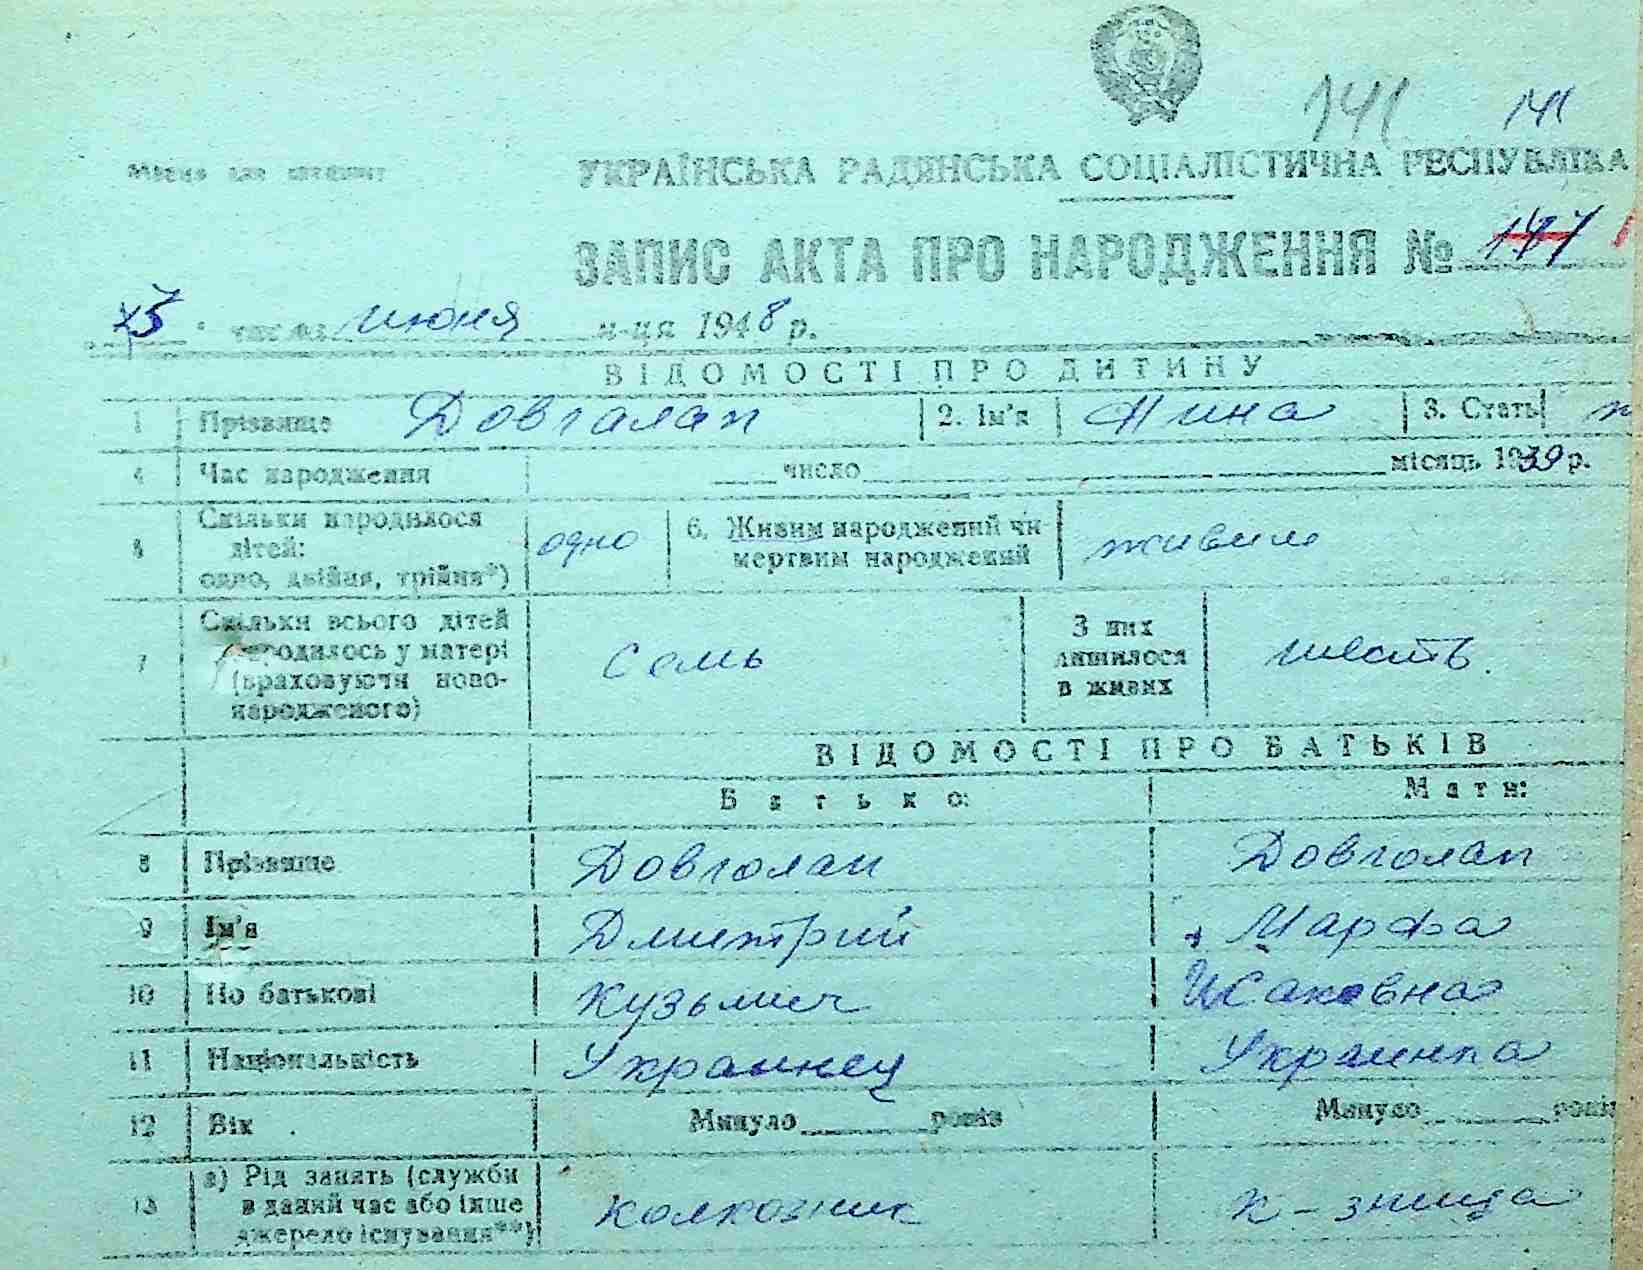 141 141
Місце для
УКРАЇНСЬКА РАДЯНСЬКА СОЦІАЛІСТИЧНА РЕСПУБЛІКА
ЗАПИС АКТА ПРО НАРОДЖЕННЯ №
числа июня м-ця 1948 р.
ВІДОМОСТІ ПРО ДИТИНУ
1 Прізвище Довгалап 2. Ім'я Нина 3. Стать
4 Час народження число місяць 1939 р.
5 Скільки народилося дітей: одно, двійня, трійня*) одно 6. Живим народжений чи мертвим народжений живым
7 Скільки всього дітей народилось у матері (враховуючи новонародженого) семь З них лишилося в живих шесть.
ВІДОМОСТІ ПРО БАТЬКІВ
Батько: Мати:
8 Прізвище Довголап Довголап
9 Ім'я Дмитрий Марфа
10 По батькові Кузьмич Исаковна
11 Національність Украинец Украинка
12 Вік Минуло років Минуло років
13 а) Рід занять (служби в даний час або інше джерело існування**) колхозник к-зница